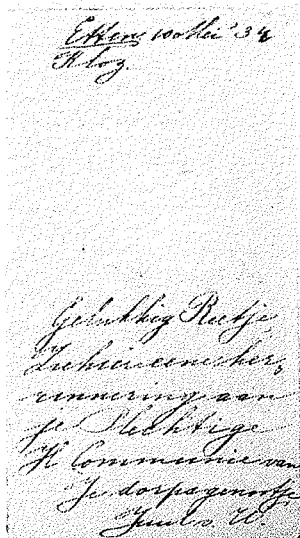 Etten, 10 Mei '34
Gelukkig Rietje
Zie hier eene her,
innering aan
je Plechtige
H Communie van
Je dorpsgenootje